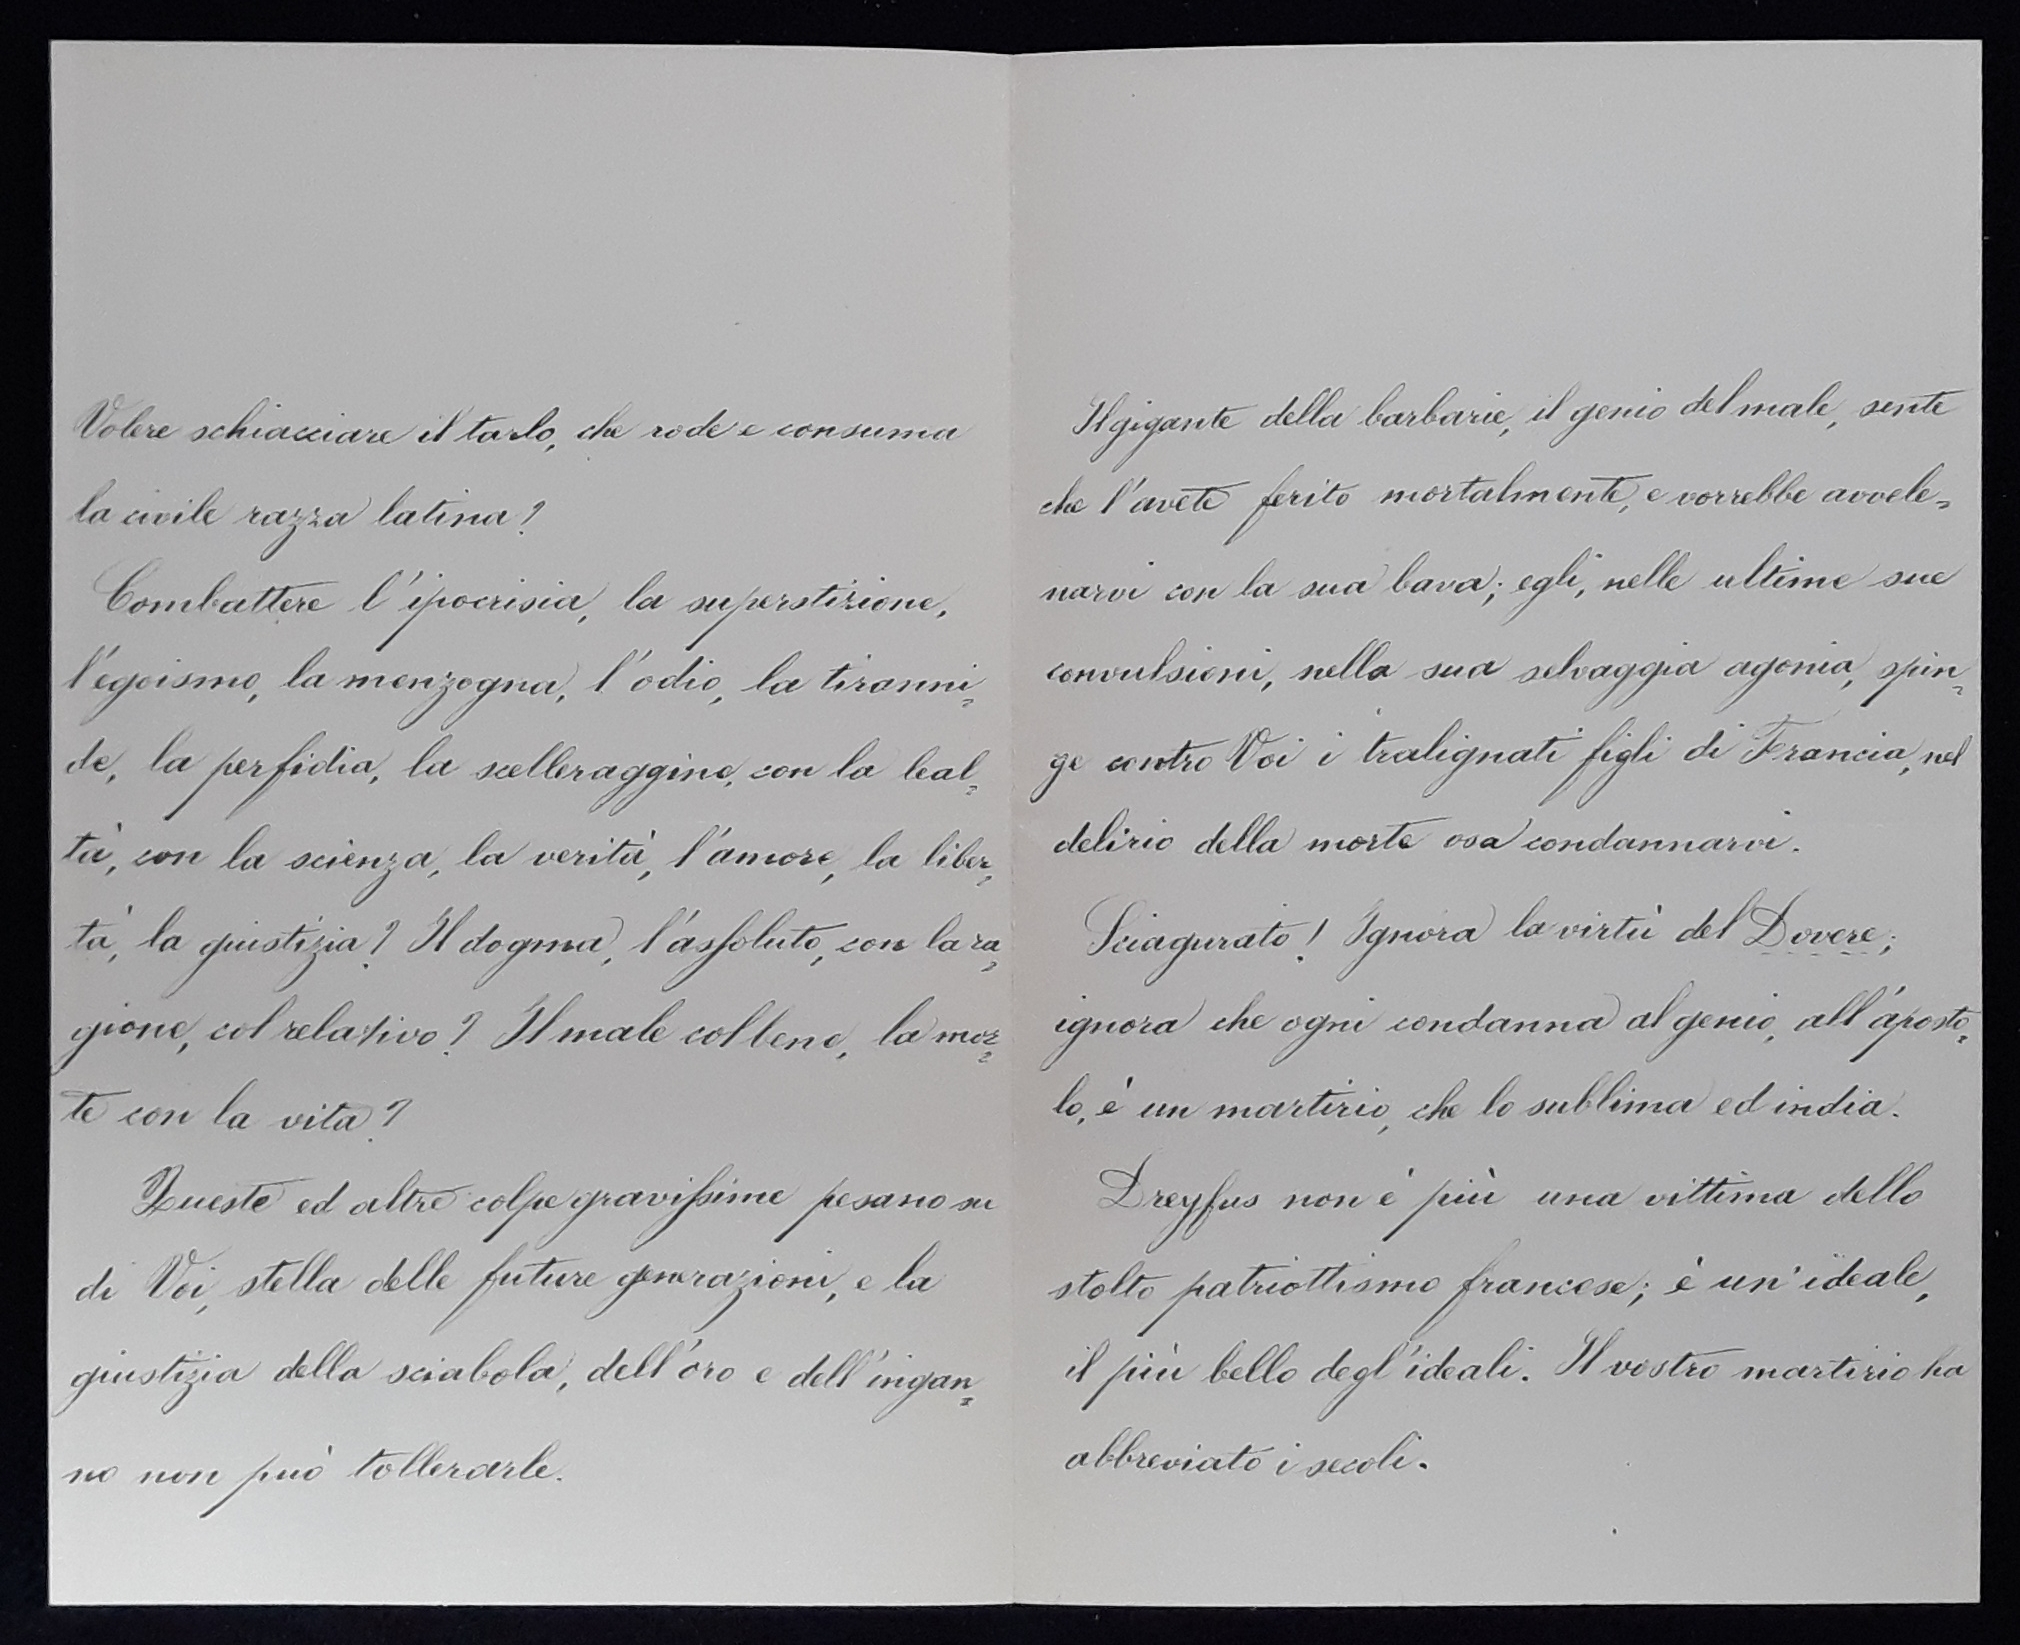 Volere schiacciare il tarlo, che rode e consuma
la civile razza latina?
Combattere l'ipocrisia, la superstizione,
l'egoismo, la menzogna, l'odio, la tiranni=
de, la perfidia, la scelleraggine, con la leal=
tà, con la scienza, la verità, l'amore, la liber=
tà, la giustizia? Il dogma, l'assoluto, con la ra=
gione, col relativo? Il male col bene, la mor=
te con la vita?
Queste ed altre colpe gravissime pesano su
di Voi, stella delle future generazioni, e la
giustizia della sciabola, dell'oro e dell'ingan=
no non può tollerarle.
Il gigante della barbarie, il genio del male, sente
che l'avete ferito mortalmente, e vorrebbe avvele=
narvi con la sua bava; egli, nelle ultime sue
convulsioni, nella sua selvaggia agonia, spin=
ge contro Voi i tralignati figli di Francia, nel
delirio della morte osa condannarvi.
Sciagurato! Ignora la virtù del Dovere;
ignora che ogni condanna al genio, all'aposto=
lo, è un martirio, che lo sublima ed india.
Dreyfus non è più una vittima dello
stolto patriottismo francese; è un'ideale,
il più bello degl'ideali. Il vostro martirio ha
abbreviato i secoli.